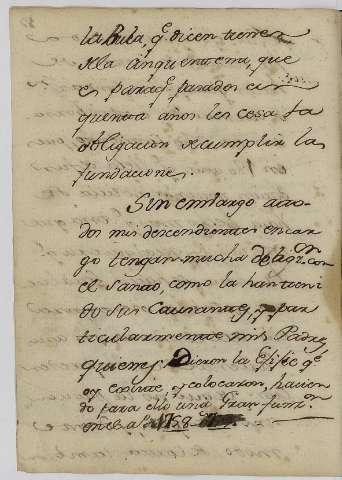 la Bula, q.e dicen tienen
de la cinquentena, que
es paraq.e pasados cin
quenta años les cesa la
obligación de cumplir las
fundaciones.
Sin embargo a to
dos mis descendientes encar
go tengan mucha con
el Santo, como la han teni
do sus Causantes, y par
ticularmente mis Padres
quienes Dieron la Efigie q.e
oy existe, y colocaron, hacien
do para ello una Gran func.on
en el a.o 1758